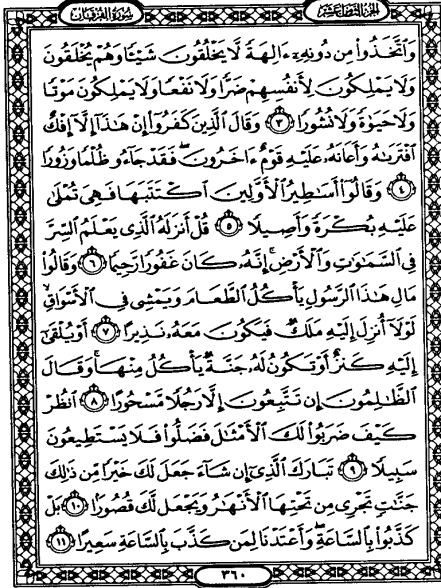 سُورَةُ الفُرْقَانِ الجُزْءُ الثَّامِنَ عَشَرَ
وَاتَّخَذُوا مِن دُونِهِ ءَالِهَةً لَّا يَخْلُقُونَ شَيْـًٔا وَهُمْ يُخْلَقُونَ
وَلَا يَمْلِكُونَ لِأَنفُسِهِمْ ضَرًّا وَلَا نَفْعًا وَلَا يَمْلِكُونَ مَوْتًا
وَلَا حَيَوٰةً وَلَا نُشُورًا ٣ وَقَالَ الَّذِينَ كَفَرُوا إِنْ هَٰذَا إِلَّا إِفْكٌ
افْتَرَىٰهُ وَأَعَانَهُۥ عَلَيْهِ قَوْمٌ ءَاخَرُونَ ۖ فَقَدْ جَاءُو ظُلْمًا وَزُورًا
٤ وَقَالُوا أَسَٰطِيرُ الْأَوَّلِينَ اكْتَتَبَهَا فَهِيَ تُمْلَىٰ
عَلَيْهِ بُكْرَةً وَأَصِيلًا ٥ قُلْ أَنزَلَهُ الَّذِي يَعْلَمُ السِّرَّ
فِي السَّمَٰوَٰتِ وَالْأَرْضِ ۚ إِنَّهُۥ كَانَ غَفُورًا رَّحِيمًا ٦ وَقَالُوا
مَالِ هَٰذَا الرَّسُولِ يَأْكُلُ الطَّعَامَ وَيَمْشِي فِي الْأَسْوَاقِ ۙ
لَوْلَا أُنزِلَ إِلَيْهِ مَلَكٌ فَيَكُونَ مَعَهُۥ نَذِيرًا ٧ أَوْ يُلْقَىٰ
إِلَيْهِ كَنزٌ أَوْ تَكُونُ لَهُۥ جَنَّةٌ يَأْكُلُ مِنْهَا ۚ وَقَالَ
الظَّٰلِمُونَ إِن تَتَّبِعُونَ إِلَّا رَجُلًا مَّسْحُورًا ٨ انظُرْ
كَيْفَ ضَرَبُوا لَكَ الْأَمْثَٰلَ فَضَلُّوا فَلَا يَسْتَطِيعُونَ
سَبِيلًا ٩ تَبَارَكَ الَّذِي إِن شَاءَ جَعَلَ لَكَ خَيْرًا مِّن ذَٰلِكَ
جَنَّٰتٍ تَجْرِي مِن تَحْتِهَا الْأَنْهَٰرُ وَيَجْعَل لَّكَ قُصُورًا ١٠ بَلْ
كَذَّبُوا بِالسَّاعَةِ ۖ وَأَعْتَدْنَا لِمَن كَذَّبَ بِالسَّاعَةِ سَعِيرًا ١١
٣٦٠